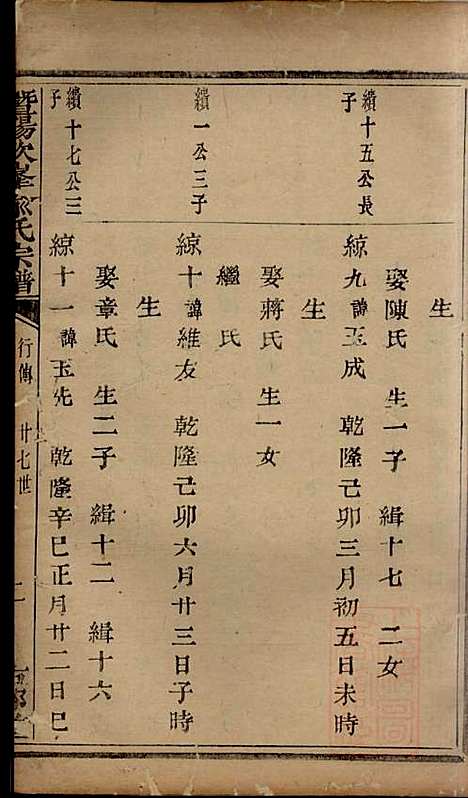 生
娶陳氏 生一子 緝十七 二女
續十五公長子
綜九諱玉成 乾隆己卯三月初五日未時
生
娶蔣氏 生一女
繼氏
續一公三子
綜十諱維友 乾隆己卯六月廿三日子時
生
娶章氏 生二子 緝十二 緝十六
續十七公三子
綜十一諱玉先 乾隆辛巳正月廿二日巳
暨陽次峯俞氏宗譜
行傳 廿七世